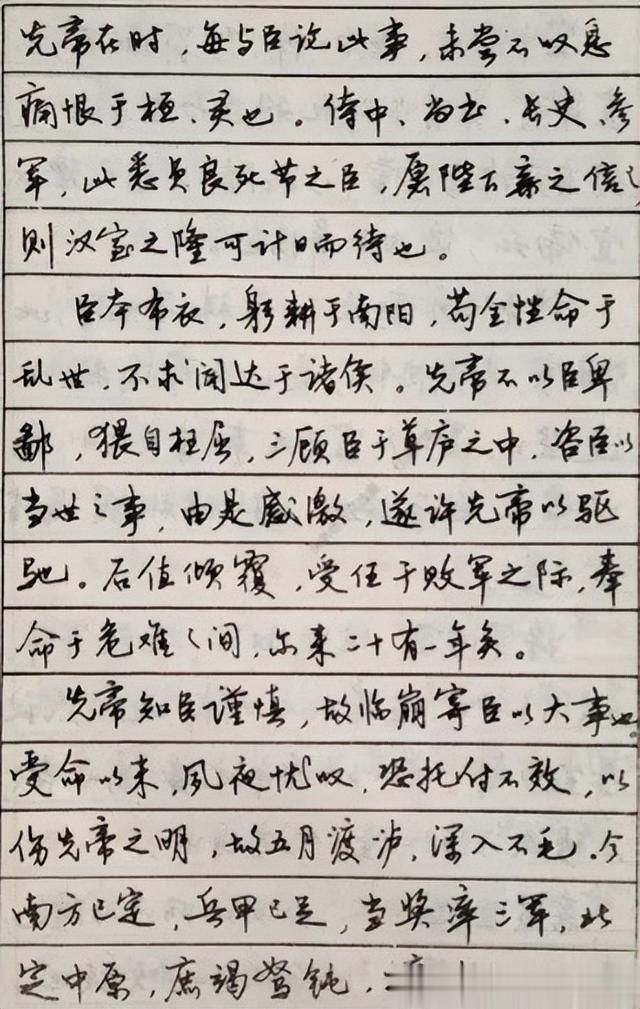 先帝在时，每与臣论此事，未尝不叹息
痛恨于桓、灵也。侍中、尚书、长史、参
军，此悉贞良死节之臣，愿陛下亲之信之
则汉室之隆可计日而待也。
臣本布衣，躬耕于南阳，苟全性命于
乱世，不求闻达于诸侯。先帝不以臣卑
鄙，猥自枉屈，三顾臣于草庐之中，咨臣以
当世之事，由是感激，遂许先帝以驱
驰。后值倾覆，受任于败军之际，奉
命于危难之间，尔来二十有一年矣。
先帝知臣谨慎，故临崩寄臣以大事也
受命以来，夙夜忧叹，恐托付不效，以
伤先帝之明，故五月渡泸，深入不毛。今
南方已定，兵甲已足，当奖率三军，北
定中原，庶竭驽钝，